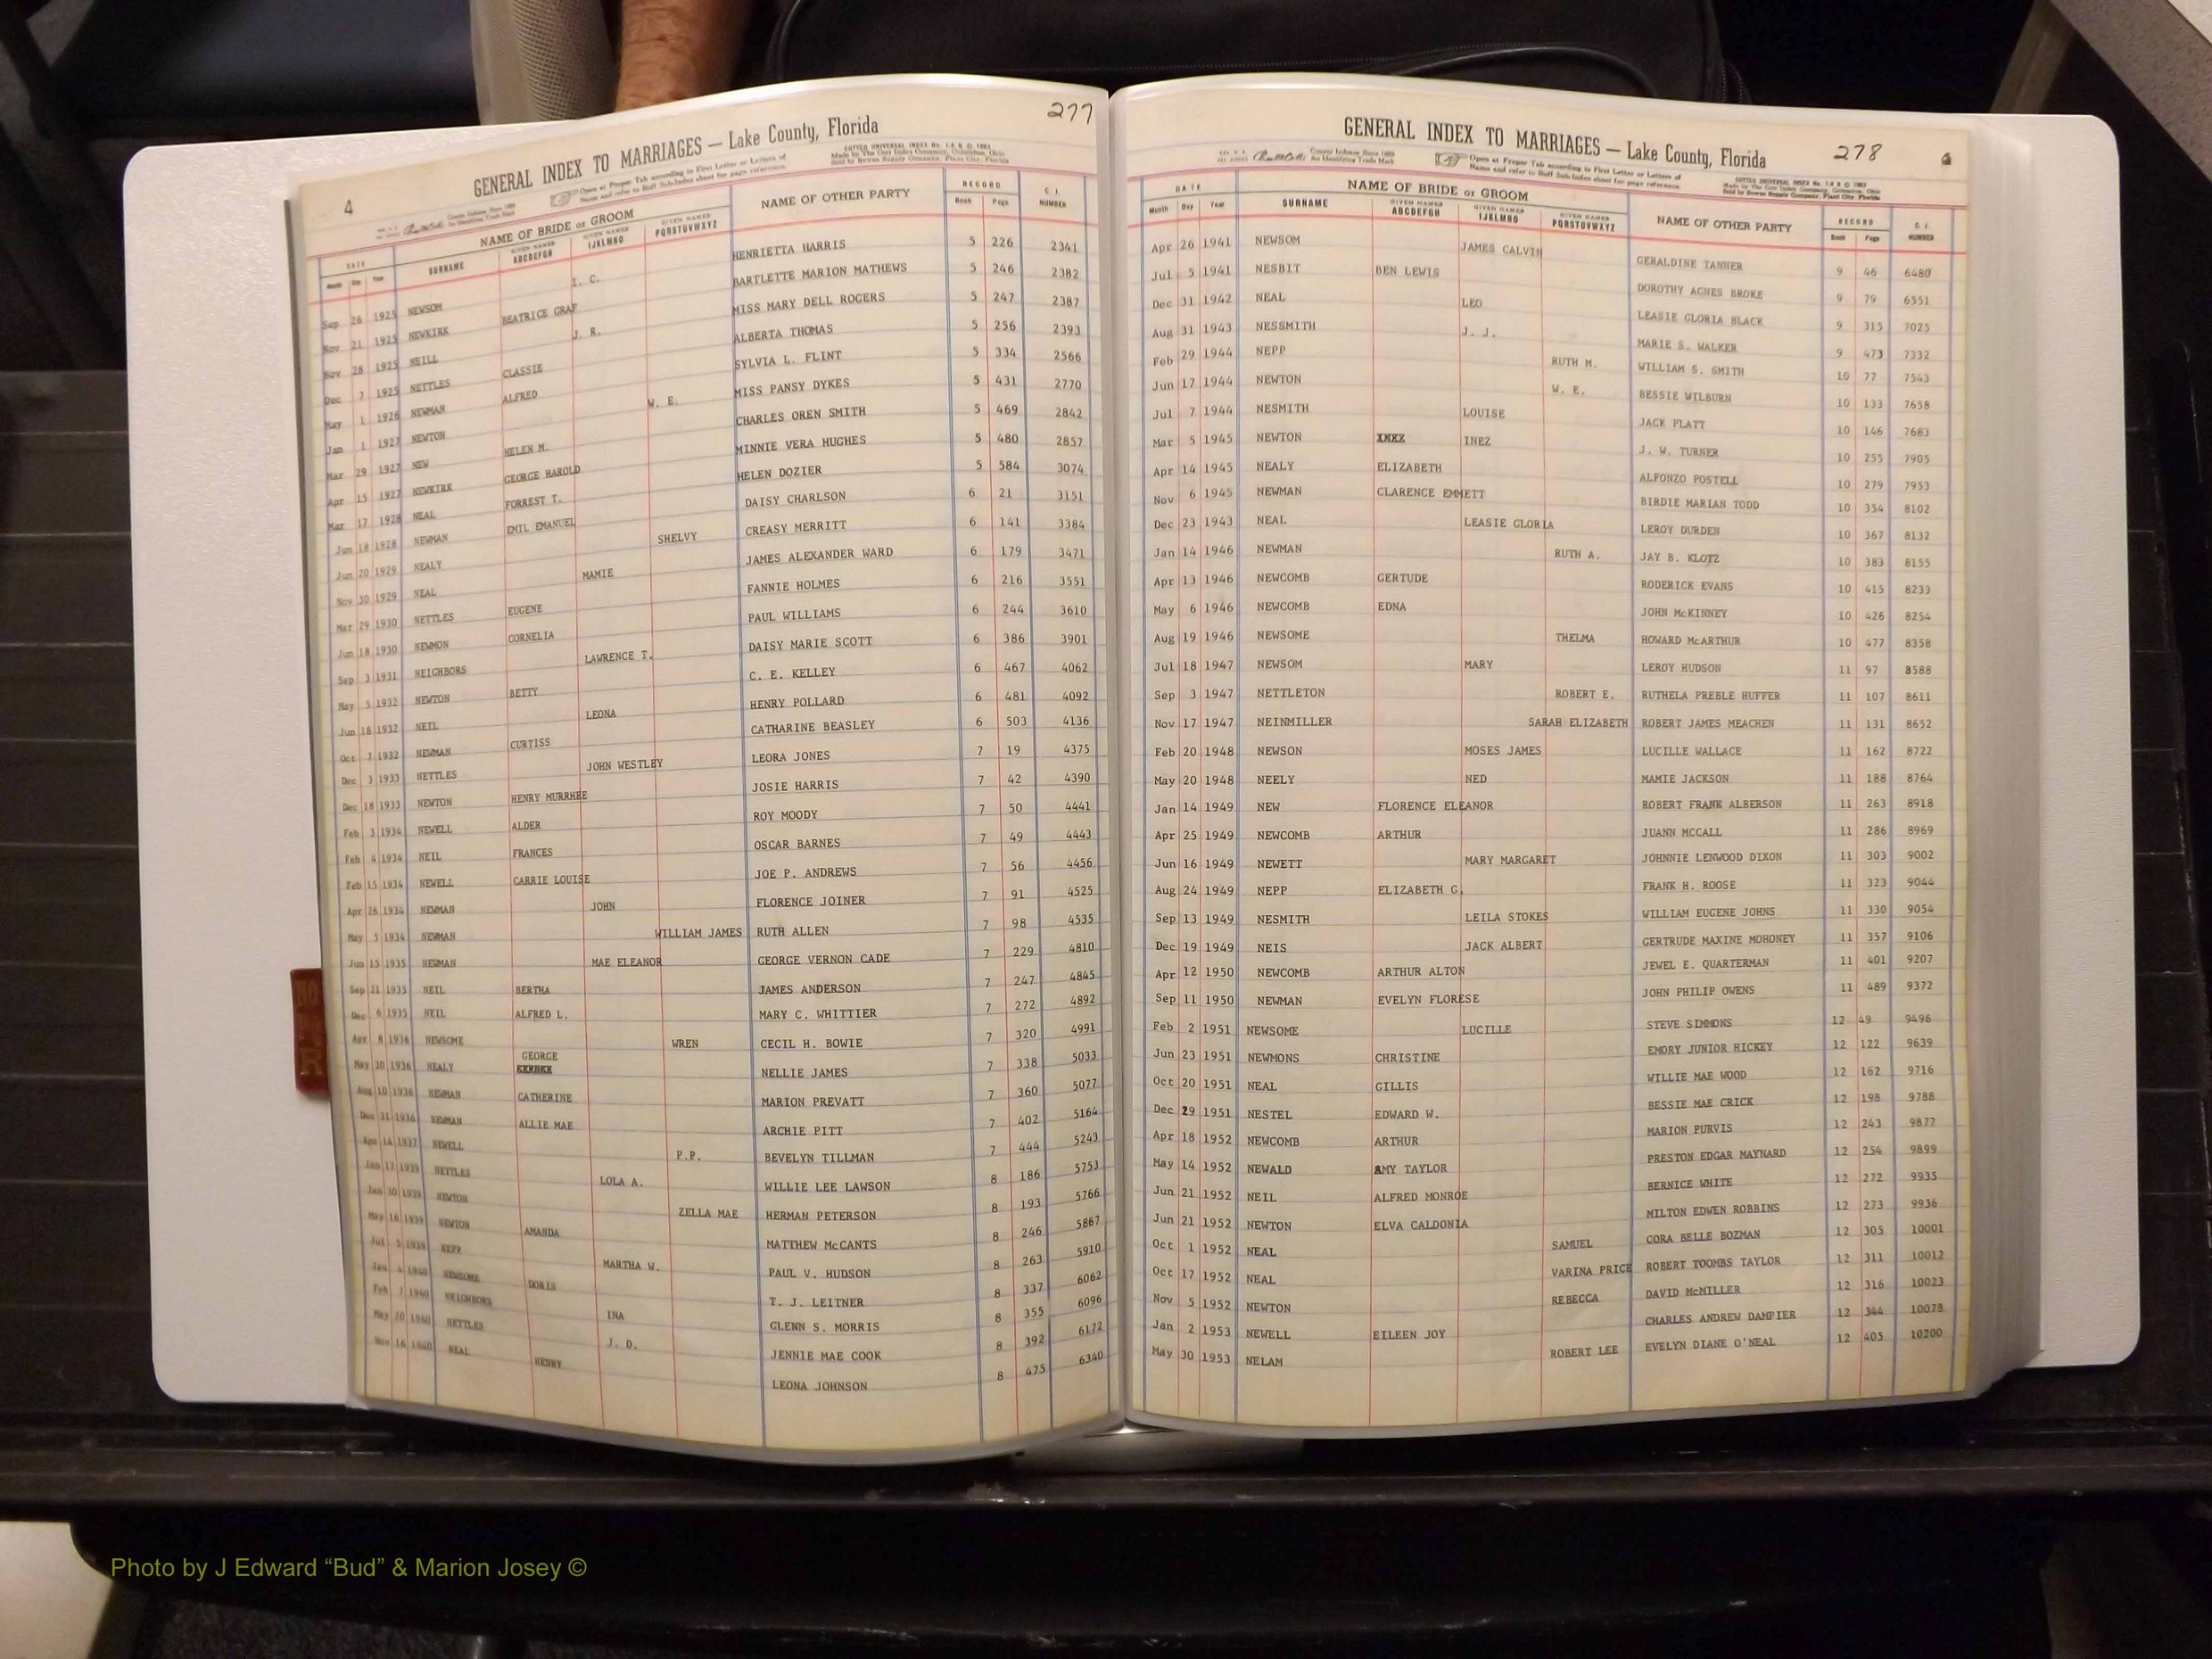 277
4
GENERAL INDEX TO MARRIAGES — Lake County, Florida
Open at Proper Tab according to First Letter or Letters of
Name and refer to Buff Sub-Index sheet for page reference.
DATE NAME OF BRIDE or GROOM NAME OF OTHER PARTY RECORD C. I.
Month Day Year SURNAME GIVEN NAMES ABCDEFGH GIVEN NAMES IJKLMNO GIVEN NAMES PQRSTUVWXYZ Book Page NUMBER
Sep 26 1925 NEWSOM I. C. HENRIETTA HARRIS 5 226 2341
Nov 21 1925 NEWKIRK BEATRICE GRAF BARTLETTE MARION MATHEWS 5 246 2382
Nov 28 1925 NEILL J. R. MISS MARY DELL ROGERS 5 247 2387
Dec 7 1925 NETTLES CLASSIE ALBERTA THOMAS 5 256 2393
May 1 1926 NEWMAN ALFRED SYLVIA L. FLINT 5 334 2566
Jan 1 1927 NEWTON W. E. MISS PANSY DYKES 5 431 2770
Mar 29 1927 NEW HELEN M. CHARLES OREN SMITH 5 469 2842
Apr 15 1927 NEWKIRK GEORGE HAROLD MINNIE VERA HUGHES 5 480 2857
Mar 17 1928 NEAL FORREST T. HELEN DOZIER 5 584 3074
Jun 18 1928 NEWMAN EMIL EMANUEL DAISY CHARLSON 6 21 3151
Jun 20 1929 NEALY SHELVY CREASY MERRITT 6 141 3384
Nov 30 1929 NEAL MAMIE JAMES ALEXANDER WARD 6 179 3471
Mar 29 1930 NETTLES EUGENE FANNIE HOLMES 6 216 3551
Jun 18 1930 NEWMON CORNELIA PAUL WILLIAMS 6 244 3610
Sep 3 1931 NEIGHBORS LAWRENCE T. DAISY MARIE SCOTT 6 386 3901
May 5 1932 NEWTON BETTY C. E. KELLEY 6 467 4062
Jun 18 1932 NEIL LEONA HENRY POLLARD 6 481 4092
Oct 7 1932 NEWMAN CURTISS CATHARINE BEASLEY 6 503 4136
Dec 3 1933 NETTLES JOHN WESTLEY LEORA JONES 7 19 4375
Dec 18 1933 NEWTON HENRY MURRHEE JOSIE HARRIS 7 42 4390
Feb 3 1934 NEWELL ALDER ROY MOODY 7 50 4441
Feb 4 1934 NEIL FRANCES OSCAR BARNES 7 49 4443
Feb 15 1934 NEWELL CARRIE LOUISE JOE P. ANDREWS 7 56 4456
Apr 26 1934 NEWMAN JOHN FLORENCE JOINER 7 91 4525
May 5 1934 NEWMAN WILLIAM JAMES RUTH ALLEN 7 98 4535
Jun 15 1935 NEWMAN MAE ELEANOR GEORGE VERNON CADE 7 229 4810
Sep 21 1935 NEIL BERTHA JAMES ANDERSON 7 247 4845
Dec 6 1935 NEIL ALFRED L. MARY C. WHITTIER 7 272 4892
Apr 8 1936 NEWSOME WREN CECIL H. BOWIE 7 320 4991
May 30 1936 NEALY GEORGE NELLIE JAMES 7 338 5033
Aug 10 1936 NEWMAN CATHERINE MARION PREVATT 7 360 5077
Dec 31 1936 NEWMAN ALLIE MAE ARCHIE PITT 7 402 5164
Apr 14 1937 NEWELL P.P. BEVELYN TILLMAN 7 444 5243
Jan 12 1939 NETTLES LOLA A. WILLIE LEE LAWSON 8 186 5753
Jan 30 1939 NEWTON ZELLA MAE HERMAN PETERSON 8 193 5766
May 16 1939 NEWTON AMANDA MATTHEW McCANTS 8 246 5867
Jul 5 1939 NEPP MARTHA W. PAUL V. HUDSON 8 263 5910
Jan 4 1940 NEWSOME DORIS T. J. LEITNER 8 337 6062
Feb 7 1940 NEIGHBORS INA GLENN S. MORRIS 8 355 6096
May 10 1940 NETTLES J. D. JENNIE MAE COOK 8 392 6172
Nov 16 1940 NEAL HENRY LEONA JOHNSON 8 475 6340
278
GENERAL INDEX TO MARRIAGES — Lake County, Florida
Open at Proper Tab according to First Letter or Letters of
Name and refer to Buff Sub-Index sheet for page reference.
DATE NAME OF BRIDE or GROOM NAME OF OTHER PARTY RECORD C. I.
Month Day Year SURNAME GIVEN NAMES ABCDEFGH GIVEN NAMES IJKLMNO GIVEN NAMES PQRSTUVWXYZ Book Page NUMBER
Apr 26 1941 NEWSOM JAMES CALVIN GERALDINE TANNER 9 46 6480
Jul 5 1941 NESBIT BEN LEWIS DOROTHY AGNES BROKE 9 79 6551
Dec 31 1942 NEAL LEO LEASIE GLORIA BLACK 9 315 7025
Aug 31 1943 NESSMITH J. J. MARIE S. WALKER 9 473 7332
Feb 29 1944 NEPP RUTH M. WILLIAM S. SMITH 10 77 7543
Jun 17 1944 NEWTON W. E. BESSIE WILBURN 10 133 7658
Jul 7 1944 NESMITH LOUISE JACK PLATT 10 146 7683
Mar 5 1945 NEWTON INEZ J. W. TURNER 10 255 7905
Apr 14 1945 NEALY ELIZABETH ALFONZO POSTELL 10 279 7953
Nov 6 1945 NEWMAN CLARENCE EMMETT BIRDIE MARIAN TODD 10 354 8102
Dec 23 1943 NEAL LEASIE GLORIA LEROY DURDEN 10 367 8132
Jan 14 1946 NEWMAN RUTH A. JAY B. KLOTZ 10 383 8155
Apr 13 1946 NEWCOMB GERTUDE RODERICK EVANS 10 415 8233
May 6 1946 NEWCOMB EDNA JOHN McKINNEY 10 426 8254
Aug 19 1946 NEWSOME THELMA HOWARD McARTHUR 10 477 8358
Jul 18 1947 NEWSOM MARY LEROY HUDSON 11 97 8588
Sep 3 1947 NETTLETON ROBERT E. RUTHELA PREBLE HUFFER 11 107 8611
Nov 17 1947 NEINMILLER SARAH ELIZABETH ROBERT JAMES MEACHEN 11 131 8652
Feb 20 1948 NEWSON MOSES JAMES LUCILLE WALLACE 11 162 8722
May 20 1948 NEELY NED MAMIE JACKSON 11 188 8764
Jan 14 1949 NEW FLORENCE ELEANOR ROBERT FRANK ALBERSON 11 263 8918
Apr 25 1949 NEWCOMB ARTHUR JUANN MCCALL 11 286 8969
Jun 16 1949 NEWETT MARY MARGARET JOHNNIE LENWOOD DIXON 11 303 9002
Aug 24 1949 NEPP ELIZABETH G. FRANK H. ROOSE 11 323 9044
Sep 13 1949 NESMITH LEILA STOKES WILLIAM EUGENE JOHNS 11 330 9054
Dec 19 1949 NEIS JACK ALBERT GERTRUDE MAXINE MOHONEY 11 357 9106
Apr 12 1950 NEWCOMB ARTHUR ALTON JEWEL E. QUARTERMAN 11 401 9207
Sep 11 1950 NEWMAN EVELYN FLORESE JOHN PHILIP OWENS 11 489 9372
Feb 2 1951 NEWSOME LUCILLE STEVE SIMMONS 12 49 9496
Jun 23 1951 NEWMONS CHRISTINE EMORY JUNIOR HICKEY 12 122 9639
Oct 20 1951 NEAL GILLIS WILLIE MAE WOOD 12 162 9716
Dec 29 1951 NESTEL EDWARD W. BESSIE MAE CRICK 12 198 9788
Apr 18 1952 NEWCOMB ARTHUR MARION PURVIS 12 243 9877
May 14 1952 NEWALD AMY TAYLOR PRESTON EDGAR MAYNARD 12 254 9899
Jun 21 1952 NEIL ALFRED MONROE BERNICE WHITE 12 272 9935
Jun 21 1952 NEWTON ELVA CALDONIA MILTON EDWEN ROBBINS 12 273 9936
Oct 1 1952 NEAL SAMUEL CORA BELLE BOZMAN 12 305 10001
Oct 17 1952 NEAL VARINA PRICE ROBERT TOOMBS TAYLOR 12 311 10012
Nov 5 1952 NEWTON REBECCA DAVID McMILLER 12 316 10023
Jan 2 1953 NEWELL EILEEN JOY CHARLES ANDREW DAMPIER 12 344 10078
May 30 1953 NELAM ROBERT LEE EVELYN DIANE O'NEAL 12 405 10200
Photo by J Edward “Bud” & Marion Josey ©